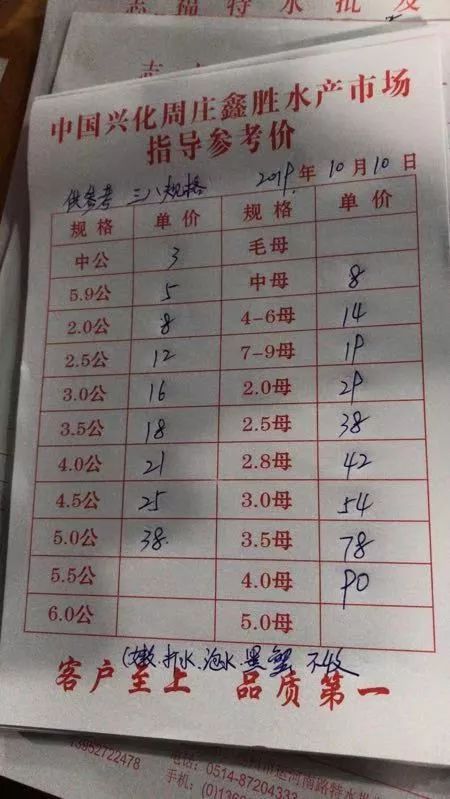 志福特水批发
中国兴化周庄鑫胜水产市场
指导参考价
供参考 三八规格 2019年10月10日
规格 单价 规格 单价
中公 3 毛母
5.9公 5 中母 8
2.0公 8 4-6母 14
2.5公 12 7-9母 19
3.0公 16 2.0母 29
3.5公 18 2.5母 38
4.0公 21 2.8母 42
4.5公 25 3.0母 54
5.0公 38. 3.5母 78
5.5公 4.0母 90
6.0公 5.0母
(嫩.打水.泡水.黑蟹 不收
客户至上 品质第一
13952722478
运河南路特水批
电话:0514-87204333
手机:(0)136